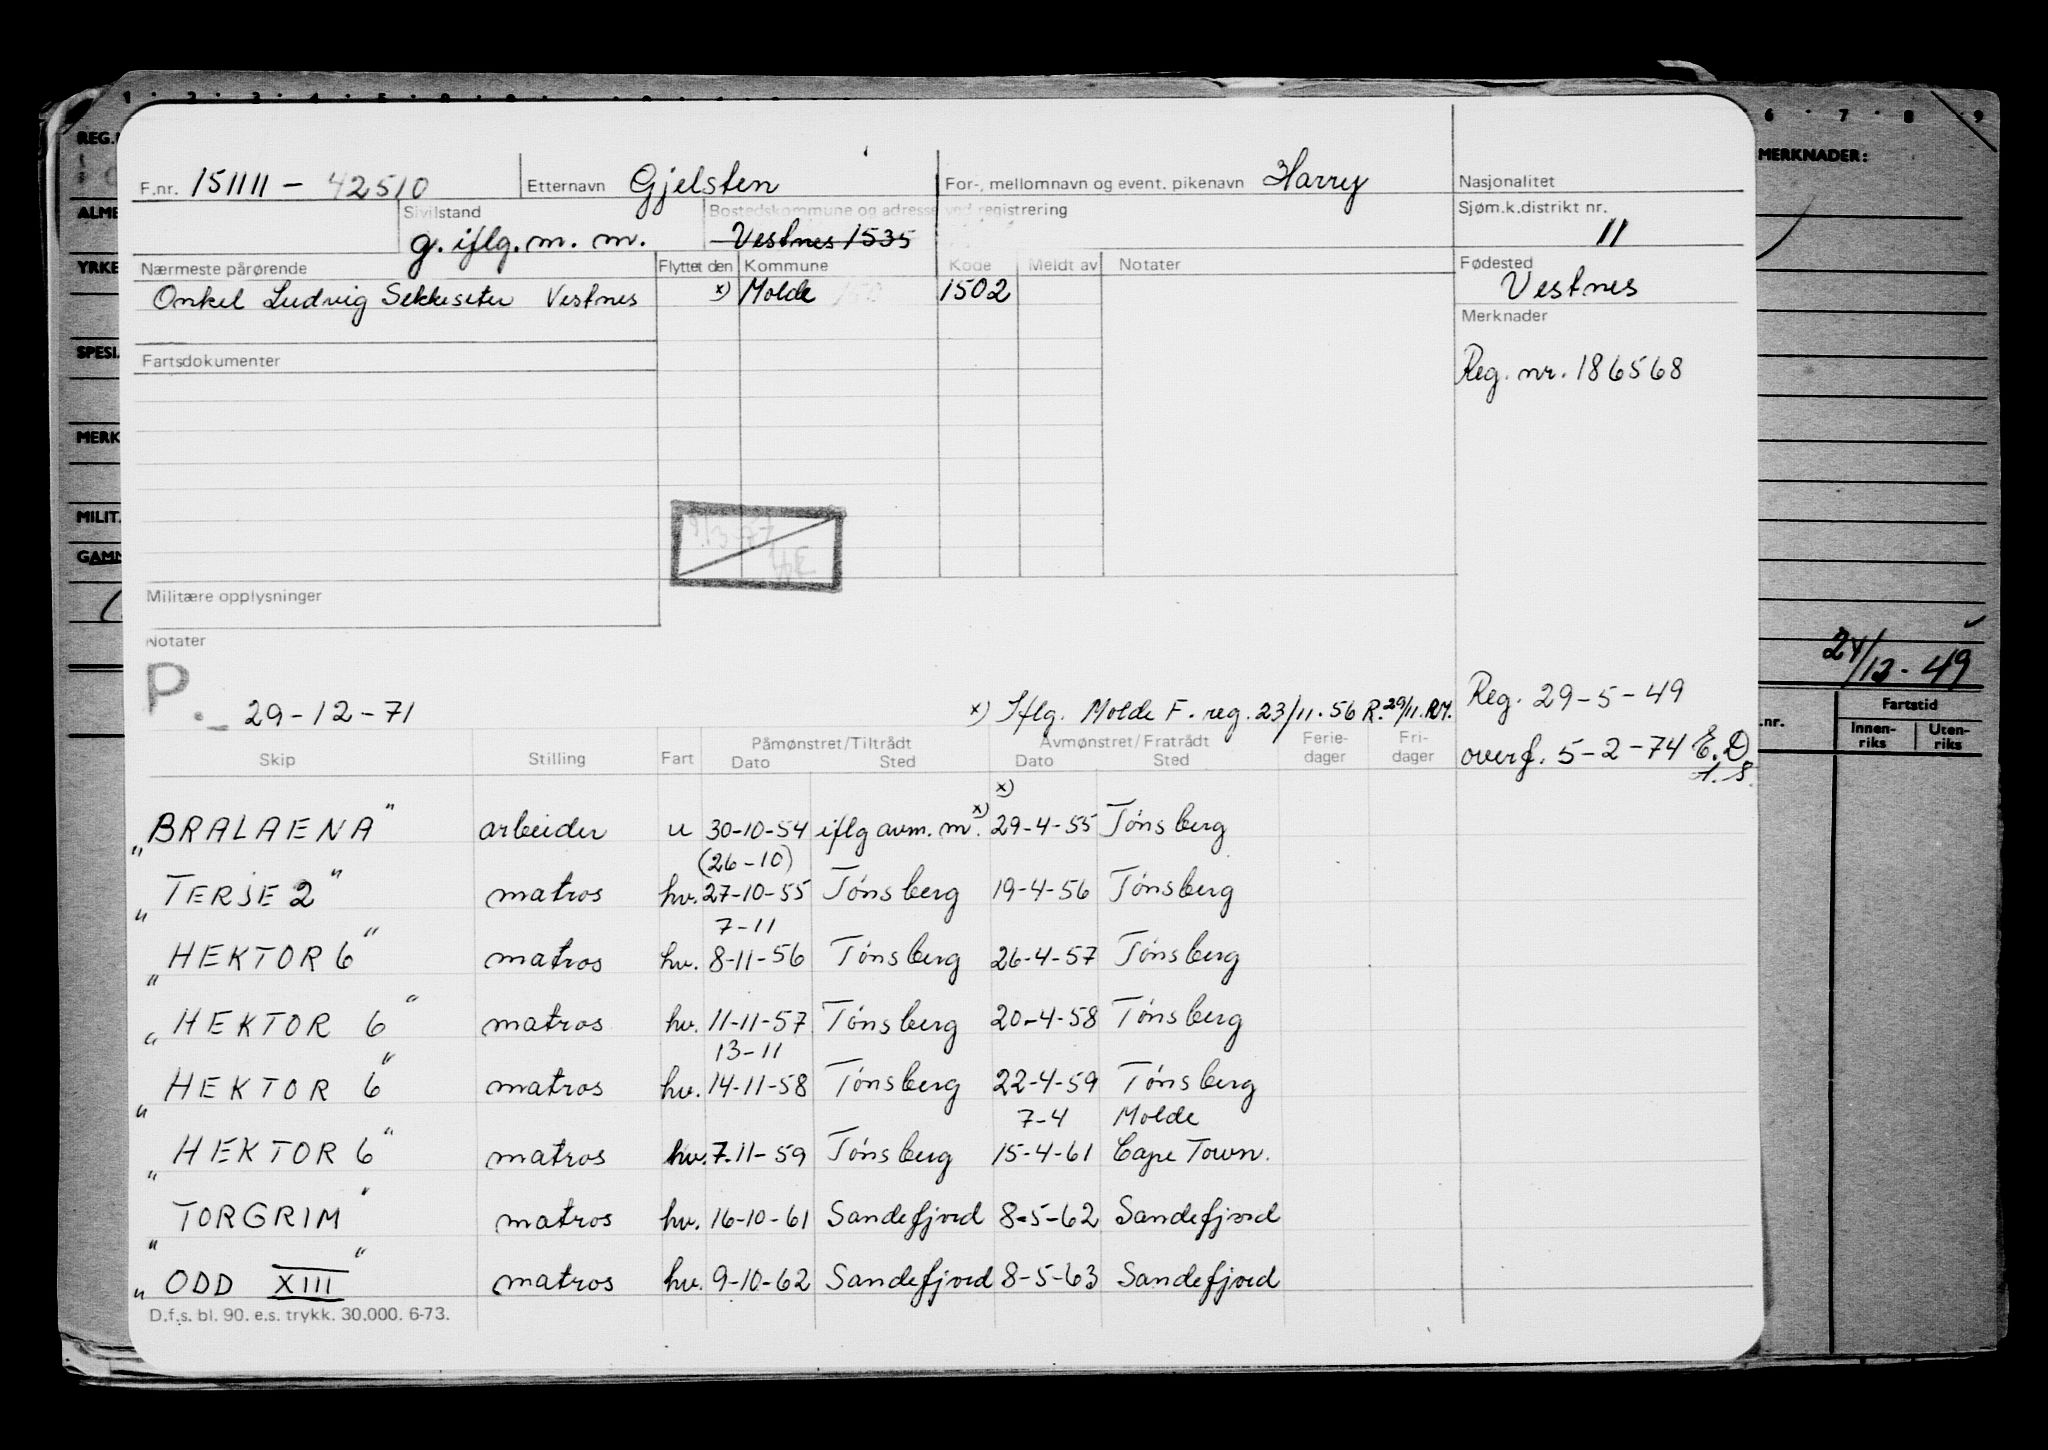 F.nr. 151111 - 42510 Etternavn Gjelsten For-, mellomnavn og event. pikenavn Harry Nasjonalitet
Sivilstand Bostedskommune og adresse ved registrering Sjøm.k.distrikt nr.
g. iflg. m. m. Vestnes 1535 11
Nærmeste pårørende Flyttet den Kommune Kode Meldt av Notater Fødested
Onkel Ludvig Sekkeseter Vestnes x) Molde 1502 Vestnes
Merknader
Fartsdokumenter
Reg. nr. 186568
Militære opplysninger
Notater
P.
29-12-71 x) Iflg. Molde F. reg. 23/11.56 R. 29/11. RM. Reg. 29-5-49
overf. 5-2-74 E.D.
A.S.
Skip Stilling Fart Påmønstret/Tiltrådt Avmønstret/Fratrådt Ferie-dager Fri-dager
Dato Sted Dato Sted
x) x)
"BRALAENA" arbeider u 30-10-54 iflg avm. m. 29-4-55 Tønsberg
(26-10)
"TERJE 2" matros hv. 27-10-55 Tønsberg 19-4-56 Tønsberg
7-11
"HEKTOR 6" matros hv. 8-11-56 Tønsberg 26-4-57 Tønsberg
"HEKTOR 6" matros hv. 11-11-57 Tønsberg 20-4-58 Tønsberg
13-11
"HEKTOR 6" matros hv. 14-11-58 Tønsberg 22-4-59 Tønsberg
7-4 Molde
"HEKTOR 6" matros hv. 7.11-59 Tønsberg 15-4-61 Cape Town.
"TORGRIM" matros hv. 16-10-61 Sandefjord 8-5-62 Sandefjord
"ODD XIII" matros hv. 9-10-62 Sandefjord 8-5-63 Sandefjord
D.f.s. bl. 90. e.s. trykk. 30.000. 6-73.
REG.
ALME
YRKE
SPESI.
MERK
MILIT.
GAMM
6 7 8 9
MERKNADER:
24/12-49
Fartstid
.nr. Innen-riks Uten-riks